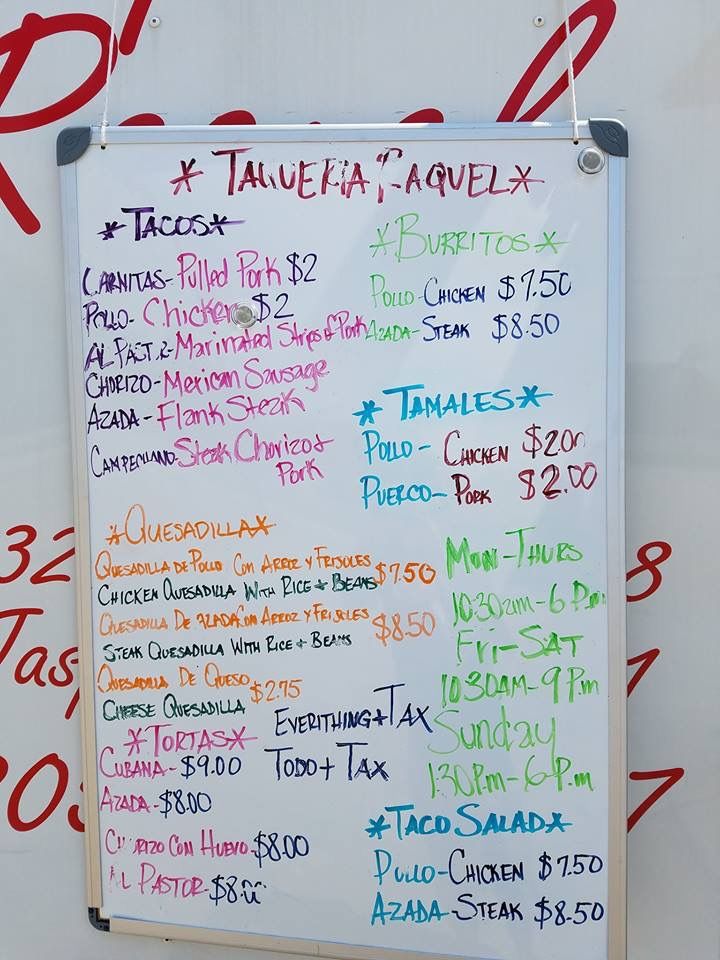 * TAQUERIA RAQUEL *
* TACOS *
CARNITAS - Pulled Pork $2
POLLO - Chicken $2
AL PASTOR - Marinated Strips of Pork
CHORIZO - Mexican Sausage
AZADA - Flank Steak
CAMPECHANO - Steak Chorizo +
Pork
* BURRITOS *
POLLO - CHICKEN $7.50
AZADA - STEAK $8.50
* TAMALES *
POLLO - CHICKEN $2.00
PUERCO - PORK $2.00
* QUESADILLA *
QUESADILLA DE POLLO CON ARROZ Y FRIJOLES $7.50
CHICKEN QUESADILLA WITH RICE + BEANS
QUESADILLA DE AZADA CON ARROZ Y FRIJOLES $8.50
STEAK QUESADILLA WITH RICE + BEANS
QUESADILLA DE QUESO $2.75
CHEESE QUESADILLA
MON - THURS
10:30am - 6 Pm
Fri - SAT
10:30AM - 9 Pm
Sunday
1:30 P.m - 6 P.m
EVERITHING + TAX
TODO + TAX
* TORTAS *
CUBANA - $9.00
AZADA - $8.00
CHORIZO CON HUEVO - $8.00
AL PASTOR - $8.00
* TACO SALAD *
POLLO - CHICKEN $7.50
AZADA - STEAK $8.50
32
8
Jas
1
7